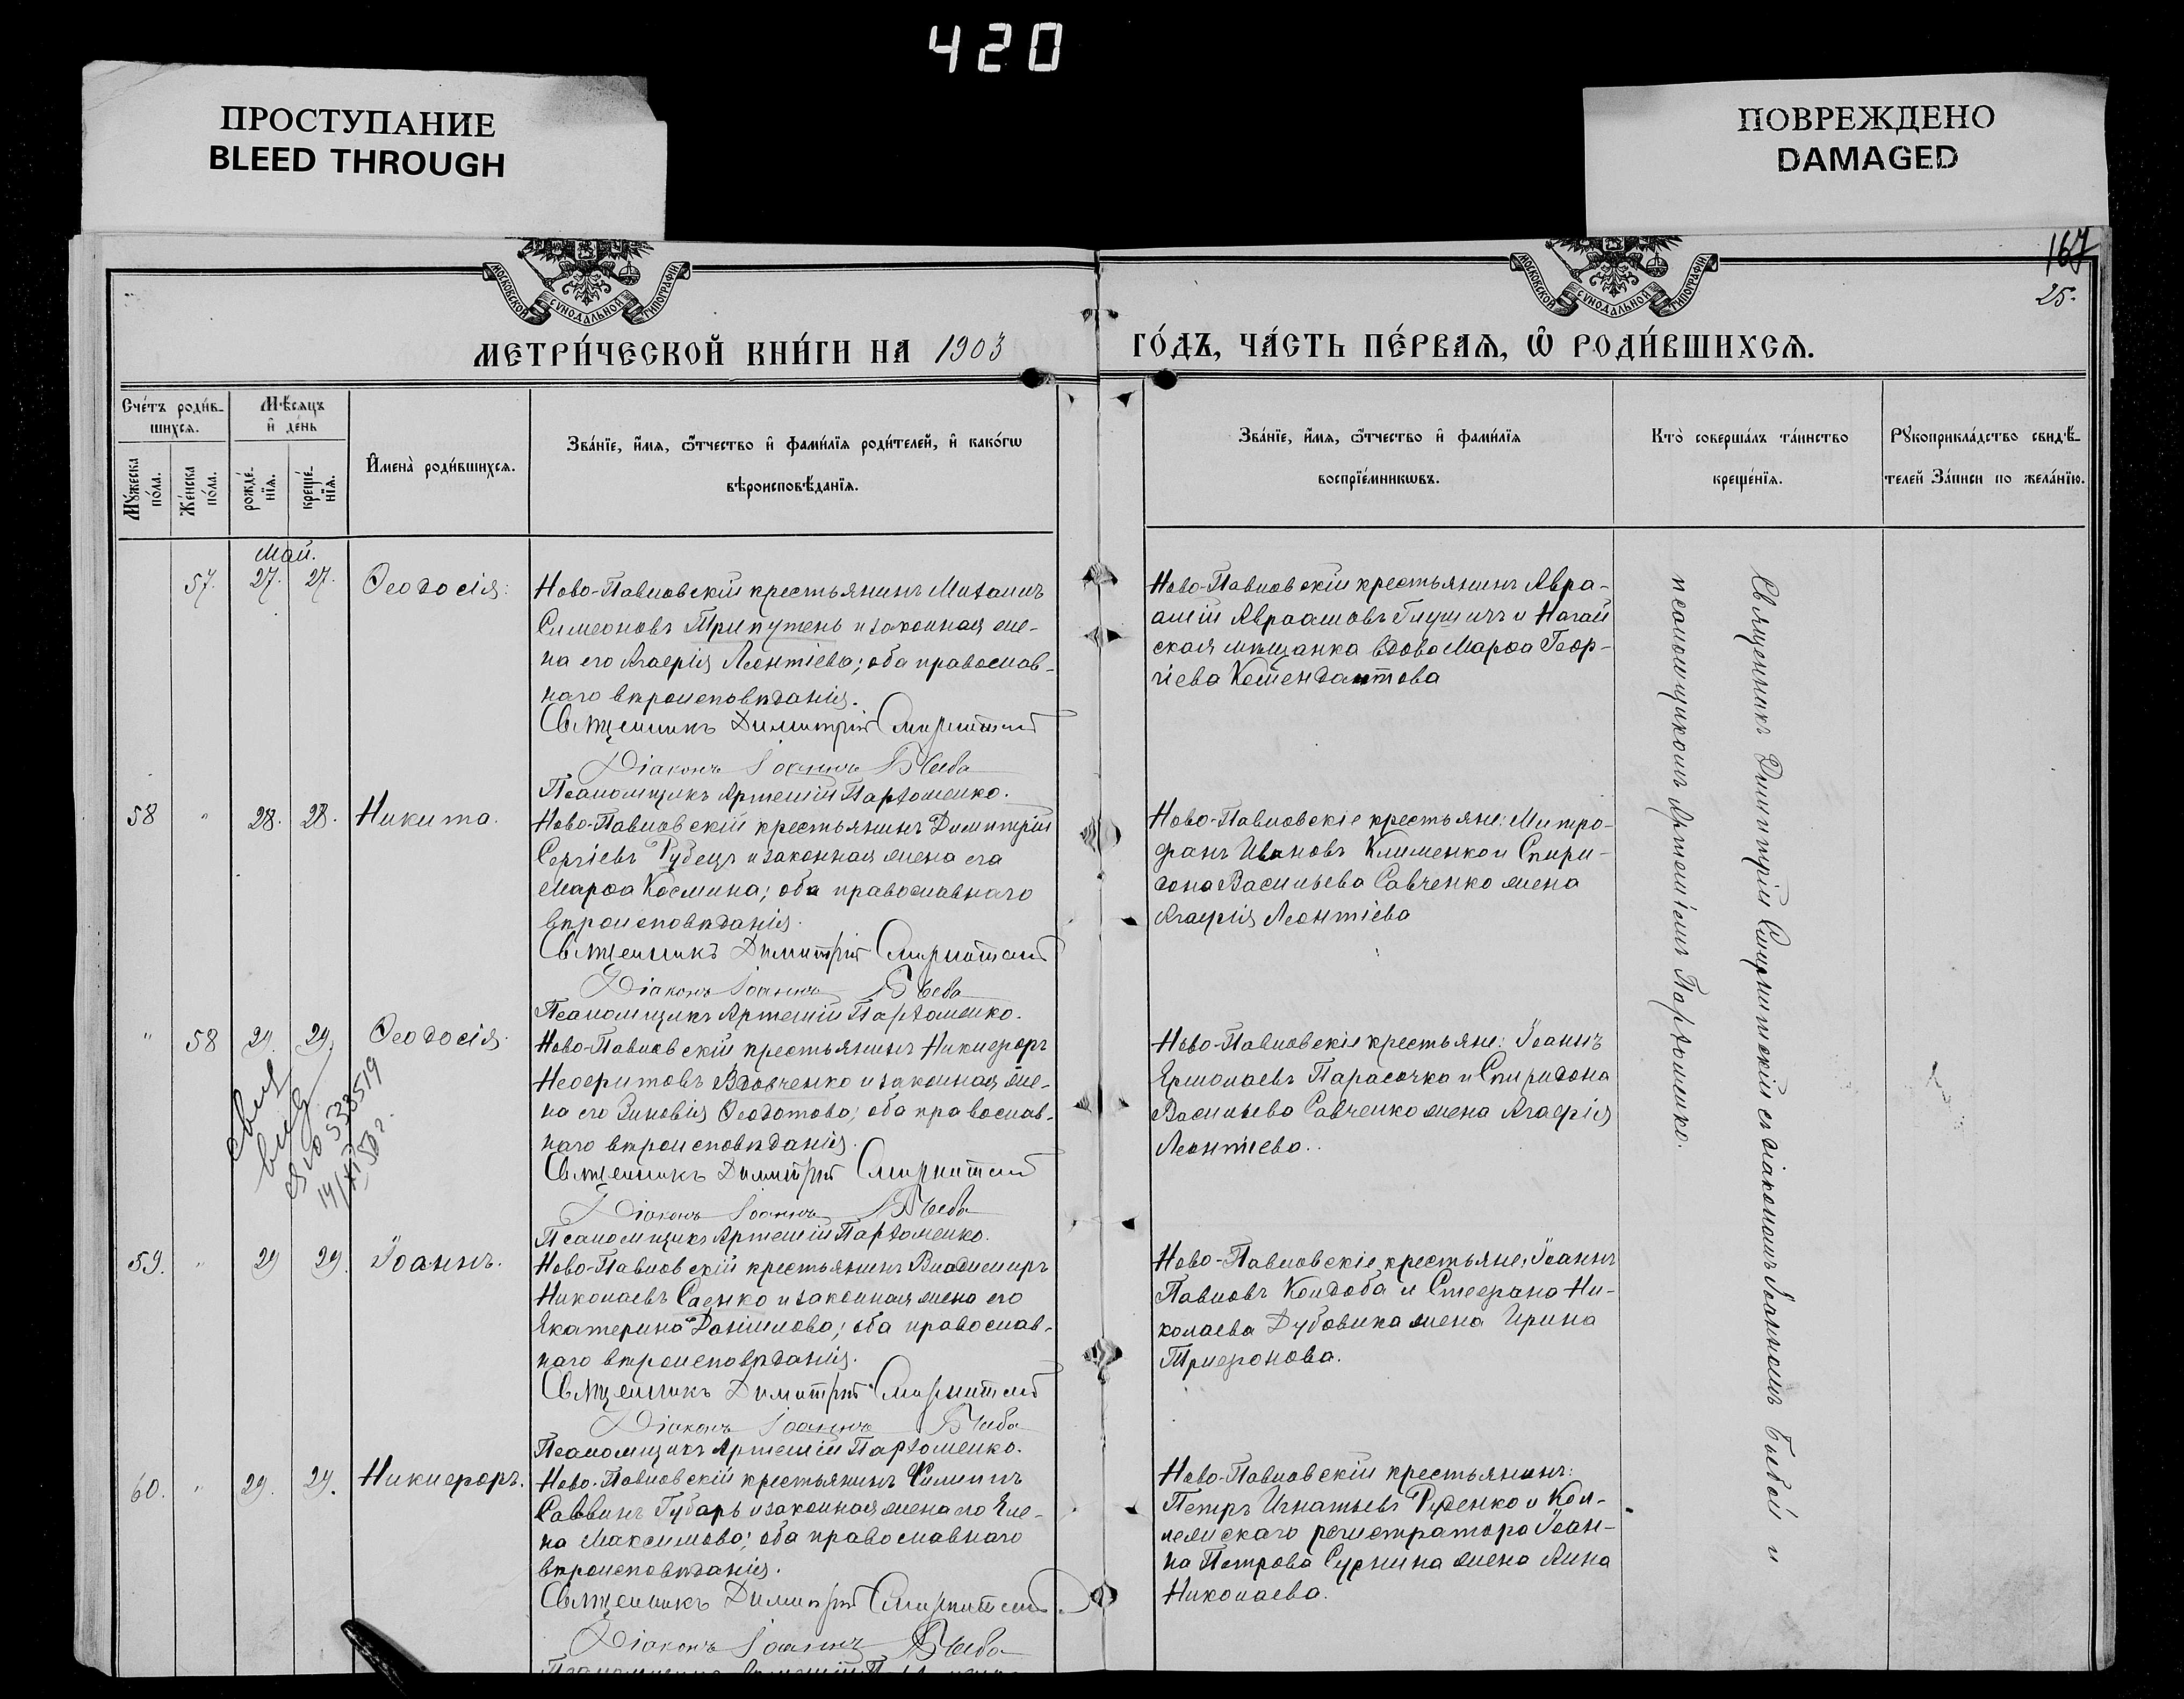 420
ПРОСТУПАНИЕ
BLEED THROUGH
ПОВРЕЖДЕНО
DAMAGED
167
25.
МОСКОВСКОЙ СѴНОДАЛЬНОЙ ТИПОГРАФІИ
МОСКОВСКОЙ СѴНОДАЛЬНОЙ ТИПОГРАФІИ
МЕТРИ́ЧЕСКОЙ КНИ́ГИ НА 1903 ГО́ДЪ, ЧА́СТЬ ПЕ́РВАѦ, Ѡ҆ РОДИ́ВШИХСѦ.
Сче́тъ роди́в-
шихсѧ.
Мꙋ́жеска по́ла.
Же́нска по́ла.
Мѣ́сѧцъ
и҆ де́нь
рожде́-
нїѧ.
креще́-
нїѧ.
И҆мена̀ роди́вшихсѧ.
Зва́нїе, и҆́мѧ, ѻ҆́тчество и҆ фами́лїѧ роди́телей, и҆ како́гѡ
вѣроисповѣ́данїѧ.
Зва́нїе, и҆́мѧ, ѻ҆́тчество и҆ фами́лїѧ
воспрїе́мникѡвъ.
Кто̀ соверша́лъ та́инство
креще́нїѧ.
Рꙋкоприкла́дство свидѣ́-
телей За́писи по жела́нїю.
Май.
57. 27. 27. Ѳеодосія:
Ново-Павловскій крестьянинъ Михаилъ
Симеоновъ Трипутень и законная же-
на его Агафія Леонтіева; оба православ-
наго вѣроисповѣданія.
Священникъ Димитрій Смирнитскій
Діаконъ Іоаннъ Бѣеба
Псаломщикъ Артемій Пархоменко.
Ново-Павловскій крестьянинъ Авра-
амій Авраамовъ Глушичъ и Ногай
ская мѣщанка вдова Марѳа Геор-
гіева
58 " 28. 28. Никита.
Ново-Павловскій крестьянинъ Димитрій
Сергіевъ Рубецъ и законная жена его
Марѳа Космина; оба православнаго
вѣроисповѣданія.
Священникъ Димитрій Смирнитскій
Діаконъ Іоаннъ Бѣеба
Псаломщикъ Артемій Пархоменко.
Ново-Павловскіе крестьяне: Митро-
фанъ Ивановъ Клименко и Спири-
дона Васильева Савченко жена
Агафія Леонтіева
" 58 29. 29. Ѳеодосія.
Ново-Павловскій крестьянинъ Никифоръ
Неофитовъ Вдовченко и законная же-
на его Зиновія Ѳеодотова; оба православ-
наго вѣроисповѣданія.
Священникъ Димитрій Смирнитскій
Діаконъ Іоаннъ Бѣеба
Псаломщикъ Артемій Пархоменко.
Ново-Павловскіе крестьяне: Іоаннъ
Ермолаевъ Парасочка и Спиридона
Васильева Савченко жена Агафія
Леонтіева.
59. " 29 29. Іоаннъ.
Ново-Павловскій крестьянинъ Владимиръ
Николаевъ Саенко и законная жена его
Екатерина Даніилова; оба православ-
наго вѣроисповѣданія.
Священникъ Димитрій Смирнитскій
Діаконъ Іоаннъ Бѣеба
Псаломщикъ Артемій Пархоменко.
Ново-Павловскіе крестьяне: Іоаннъ
Павловъ Кондоба и Стефана Ни-
колаева Дубовика жена Ирина
Трифонова.
60. " 29. 29. Никифоръ.
Ново-Павловскій крестьянинъ Филиппъ
Саввинъ Губарь и законная жена его Еле-
на Максимова; оба православнаго
вѣроисповѣданія.
Священникъ Димитрій Смирнитскій
Діаконъ Іоаннъ Бѣеба
Ново-Павловскій крестьянинъ:
Петръ Игнатьевъ Руденко и Кол-
лежскаго регистратора Іоан-
на Петрова Сурнина жена Анна
Николаева.
Священникъ Димитрій Смирнитскій съ діакономъ Іоанномъ Бѣебой и
псаломщикомъ Артеміемъ Пархоменко.